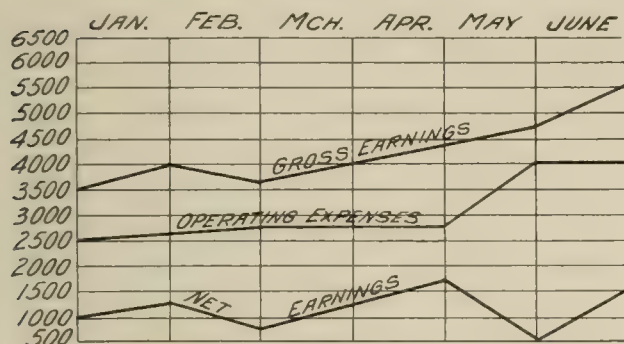 JAN. FEB. MCH. APR. MAY JUNE
6500
6000
5500
5000
4500
4000
3500
3000
2500
2000
1500
1000
500
GROSS EARNINGS
OPERATING EXPENSES
NET EARNINGS